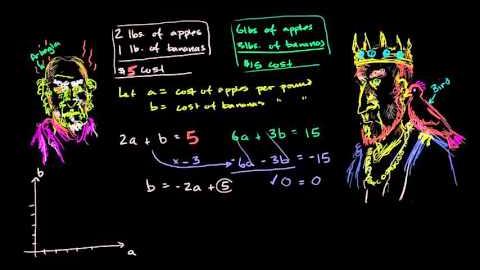 Arbegla
2 lbs of apples
1 lb. of bananas
$5 cost
6 lbs of apples
3 lbs. of bananas
$15 cost
Let a = cost of apples per pound
b = cost of bananas " "
Bird
2a + b = 5
6a + 3b = 15
x -3
-6a - 3b = -15
b = -2a + 5
✓ 0 = 0
b
a